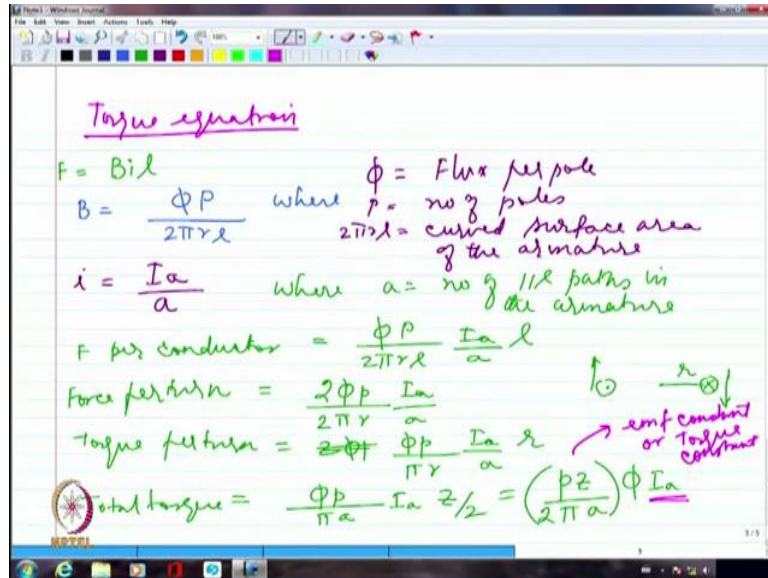 Note1 - Windows Journal
File Edit View Insert Actions Tools Help
100%
B I
Torque equation
F = Bil
Φ = Flux per pole
B = ΦP / 2πrl where P = no of poles
2πrl = curved surface area of the armature
i = Ia / a where a = no of 11l paths in the armature
F per conductor = ΦP / 2πrl Ia / a l
Force per turn = 2ΦP / 2πr Ia / a
r
Torque per turn = ΦP / πr Ia / a r
emf constant or Torque constant
Total torque = ΦP / πa Ia Z/2 = (PZ / 2πa) Φ Ia
NPTEL
5/5